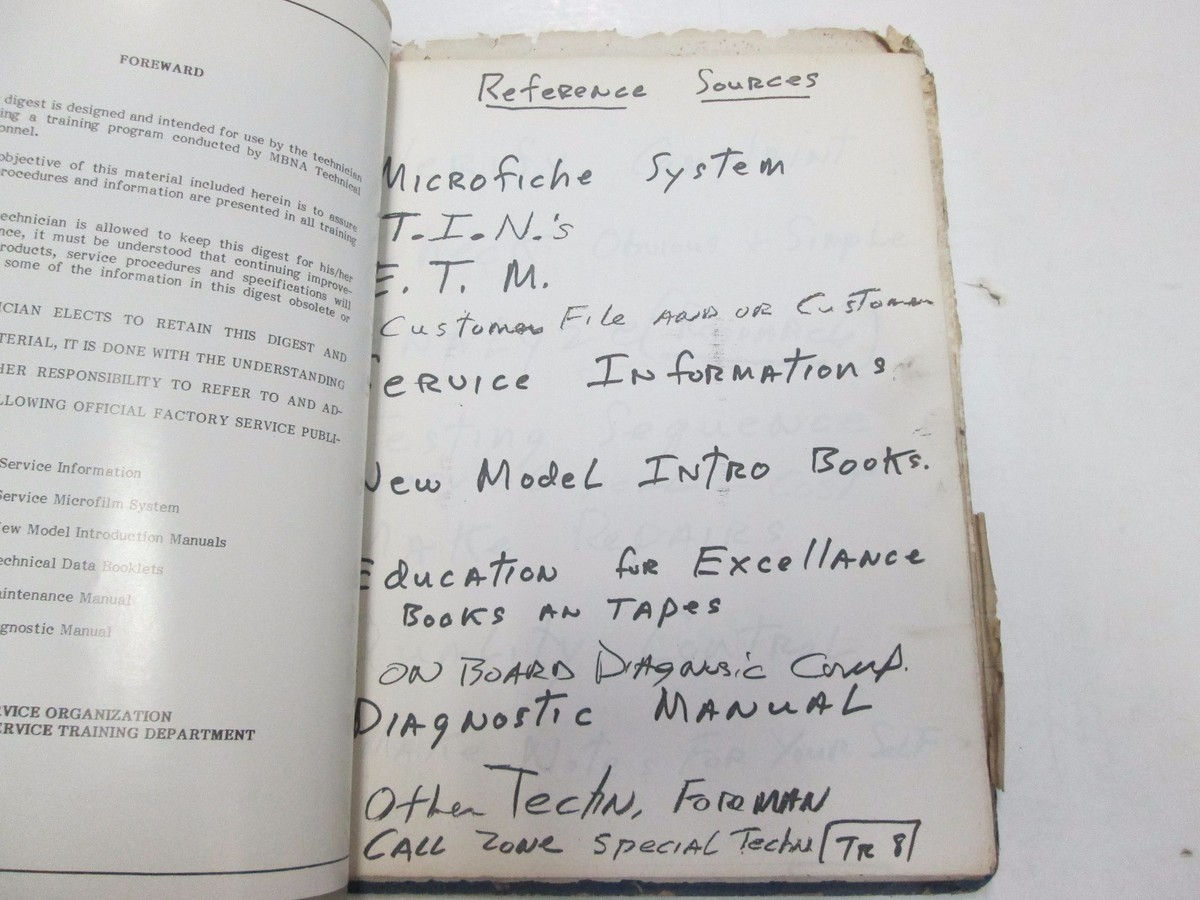 FOREWARD
digest is designed and intended for use by the technician
ing a training program conducted by MBNA Technical
onnel.
objective of this material included herein is to assure
rocedures and information are presented in all training
echnician is allowed to keep this digest for his/her
nce, it must be understood that continuing improve-
roducts, service procedures and specifications will
some of the information in this digest obsolete or
ICIAN ELECTS TO RETAIN THIS DIGEST AND
TERIAL, IT IS DONE WITH THE UNDERSTANDING
HER RESPONSIBILITY TO REFER TO AND AD-
LLOWING OFFICIAL FACTORY SERVICE PUBLI-
Service Information
Service Microfilm System
ew Model Introduction Manuals
echnical Data Booklets
aintenance Manual
gnostic Manual
RVICE ORGANIZATION
ERVICE TRAINING DEPARTMENT
Reference Sources
Microfiche System
T.I.N.'s
E. T. M.
Customer File AND OR Customer
Service Informations
New Model Intro Books.
Education for Excellance
Books an Tapes
ON BOARD Diagnusic Comp.
Diagnostic Manual
Other Techn, Foreman
CALL Zone Special Techn TR 8
Obvious Simple
Testing Sequence
Make Repairs
Quality Control
Make Notes For Your Self